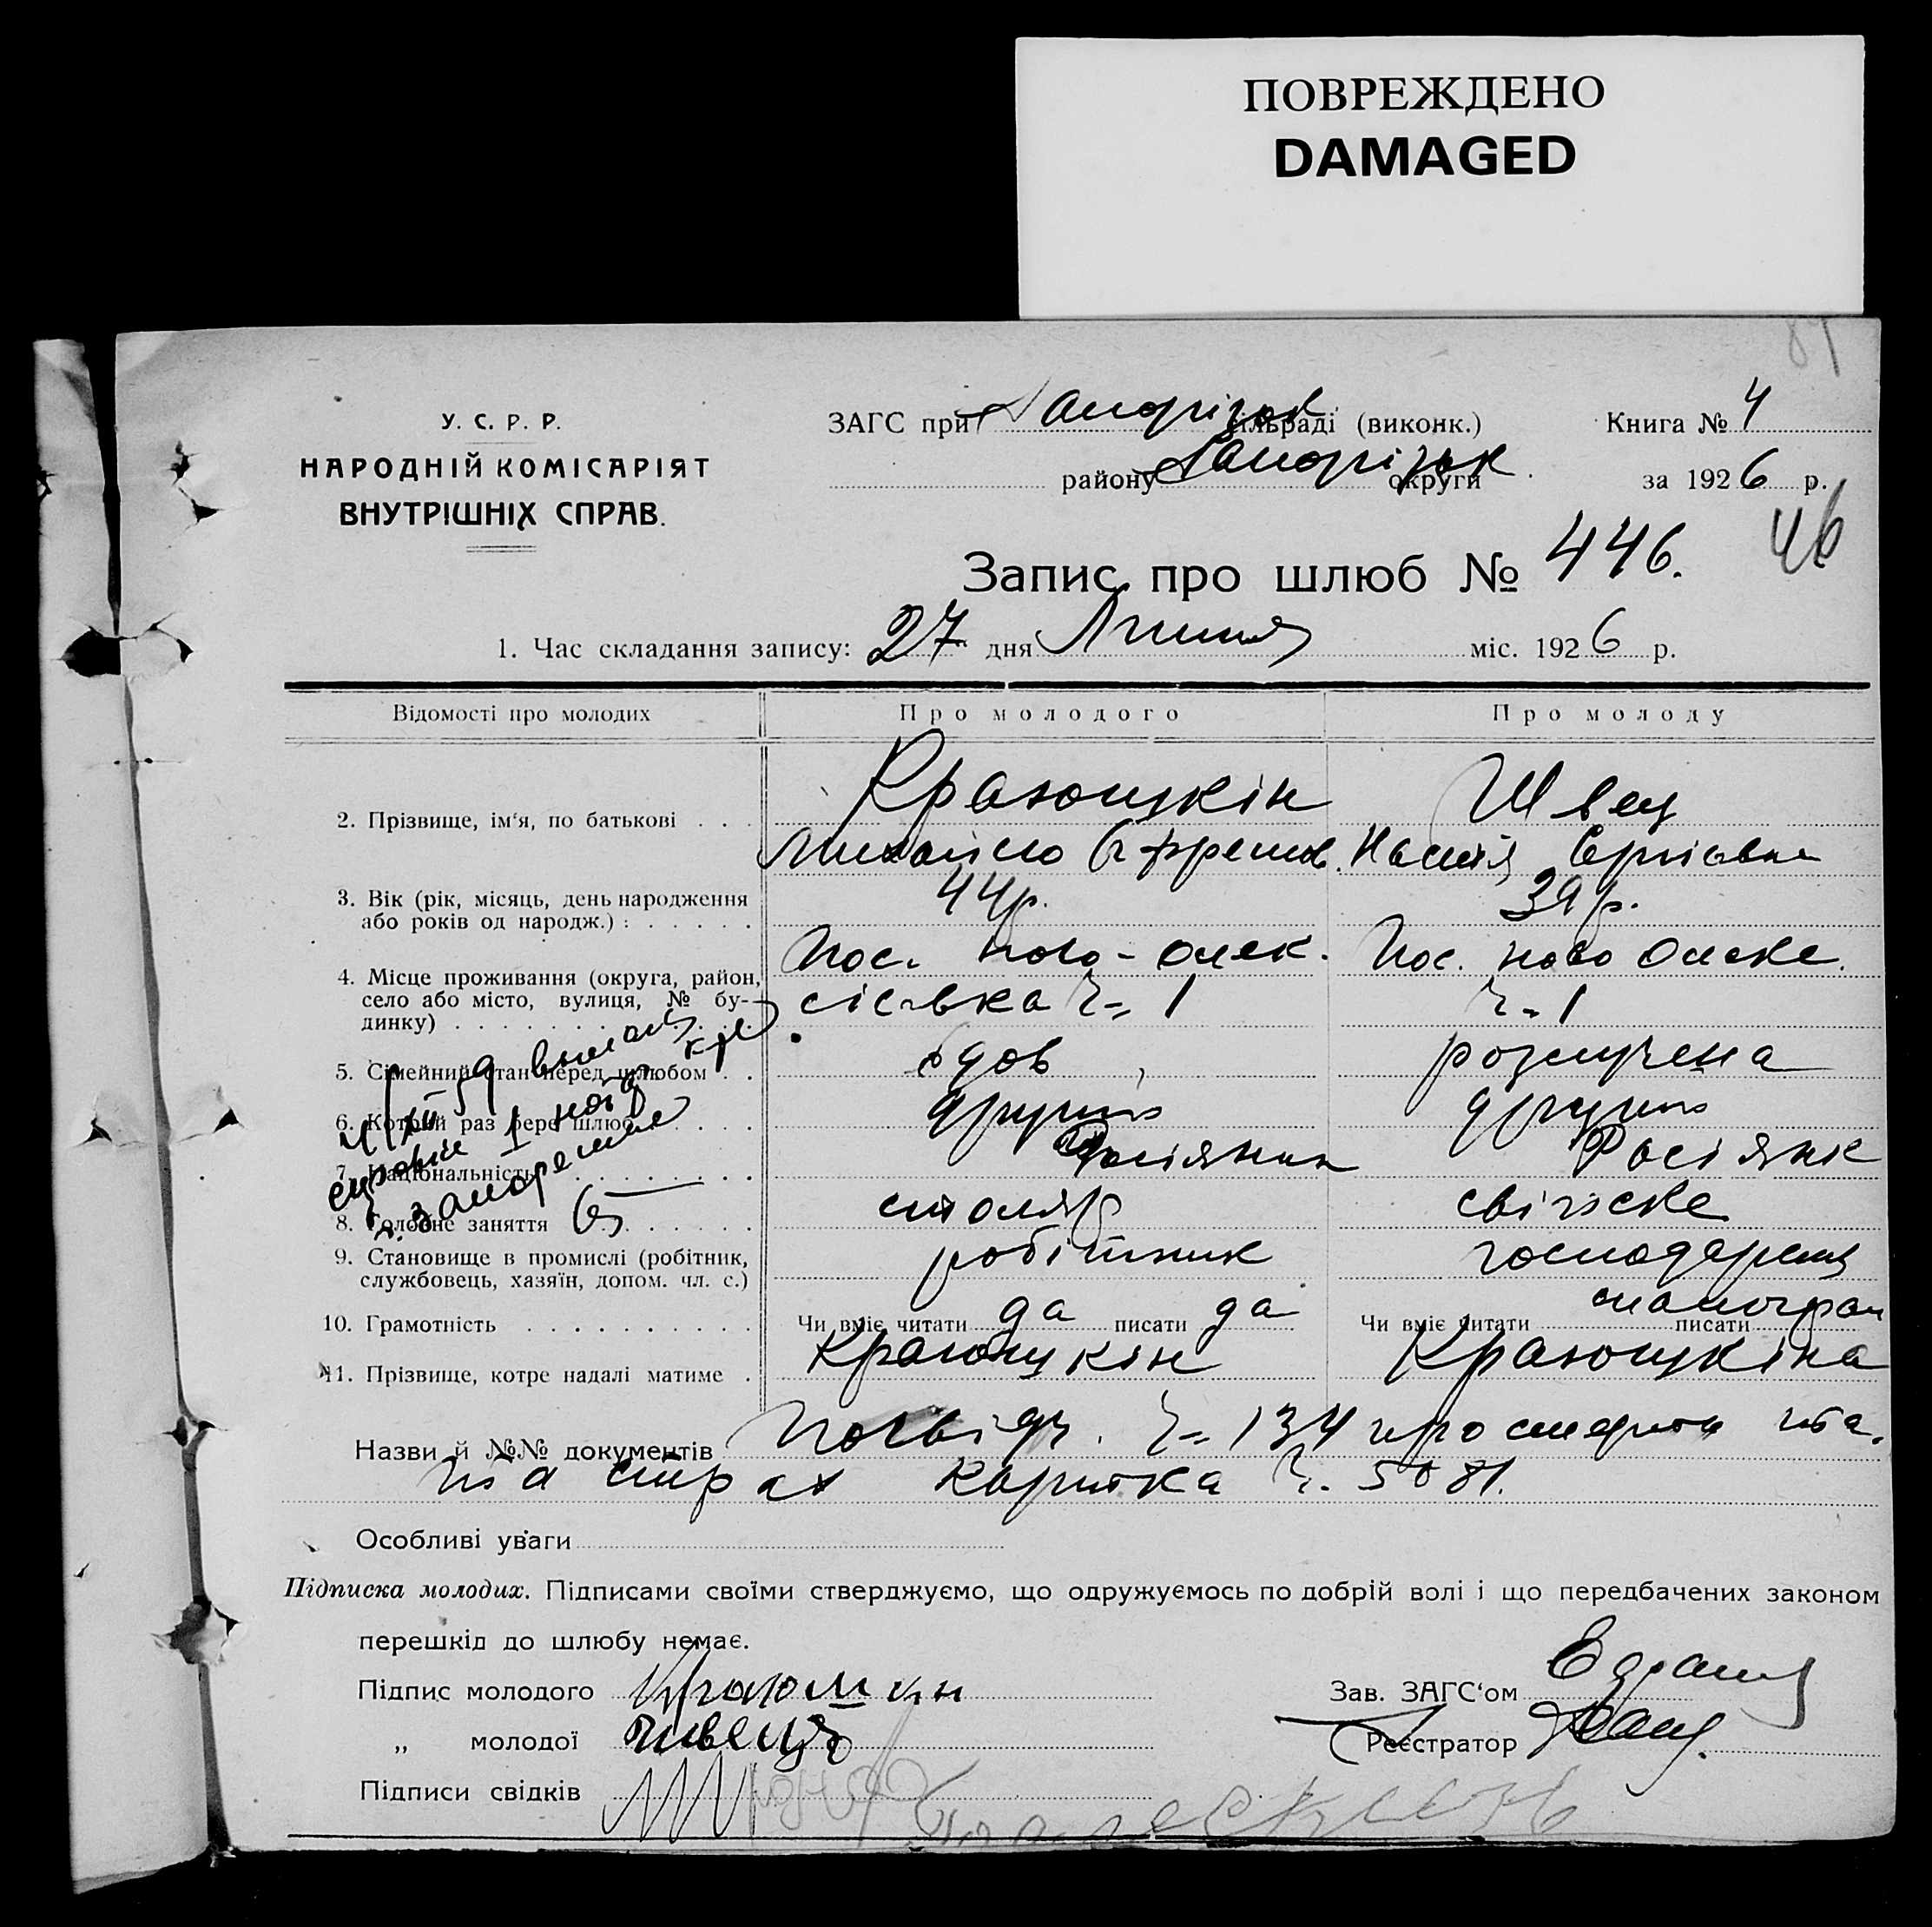 ПОВРЕЖДЕНО
DAMAGED
У. С. Р. Р.
НАРОДНІЙ КОМІСАРІЯТ
ВНУТРІШНІХ СПРАВ.
ЗАГС при Запорізьк сільраді (виконк.)
Книга № 4
району Запорізьк округи
за 1926 р.
46
Запис про шлюб № 446.
1. Час складання запису: 27 дня Липня міс. 1926 р.
Відомості про молодих
Про молодого
Про молоду
2. Прізвище, ім'я, по батькові . . .
Краюшкін
Швец
Михайло Ефремов.
Настя Сергієвна
3. Вік (рік, місяць, день народження
або років од народж.) : . . . . .
44 р.
39 р.
4. Місце проживання (округа, район,
село або місто, вулиця, № бу-
динку) . . . . . . . . . .
Пос. ново-олек.
сіевка ч= 1
Пос. ново Олекс.
ч= 1
5. Сімейний стан перед шлюбом . .
вдов
розлучена
6. Котрий раз бере шлюб . . . .
другий
другий
7. Національність . . . . . . . .
Росіянин
Росіянк
8. Головне заняття . . . . . .
столяр
свійське
9. Становище в промислі (робітник,
службовець, хазяїн, допом. чл. с.)
робітник
господарства
10. Грамотність . . . . . . . . . .
Чи вміє читати да писати да
Чи вміє читати писати
малограм
11. Прізвище, котре надалі матиме .
Краюшкін
Краюшкіна
Назви й №№ документів Посвідч. ч= 134 про смерть
та страх картка ч. 5081.
Особливі уваги
Підписка молодих. Підписами своїми стверджуємо, що одружуємось по добрій волі і що передбачених законом
перешкід до шлюбу немає.
Підпис молодого Краюшкин
Зав. ЗАГС'ом
„ молодої Швець
Реєстратор
Підписи свідків